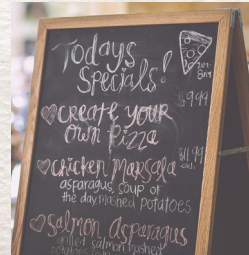 Today's
Specials!
2PM-
8PM
$9.99
Create Your
Own Pizza
Chicken Marsala
$11.99
asparagus, soup of
the day, mashed potatoes
Salmon Asparagus
grilled salmon, mashed